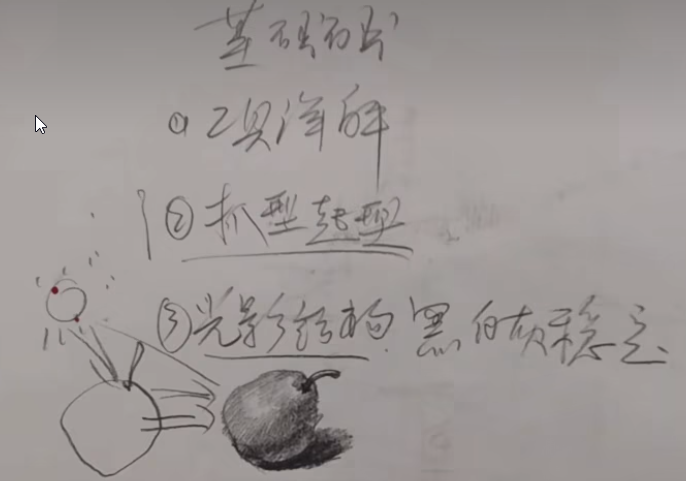 基础部分
①工具详解
②抓型起型
③光影结构 黑白灰稳定